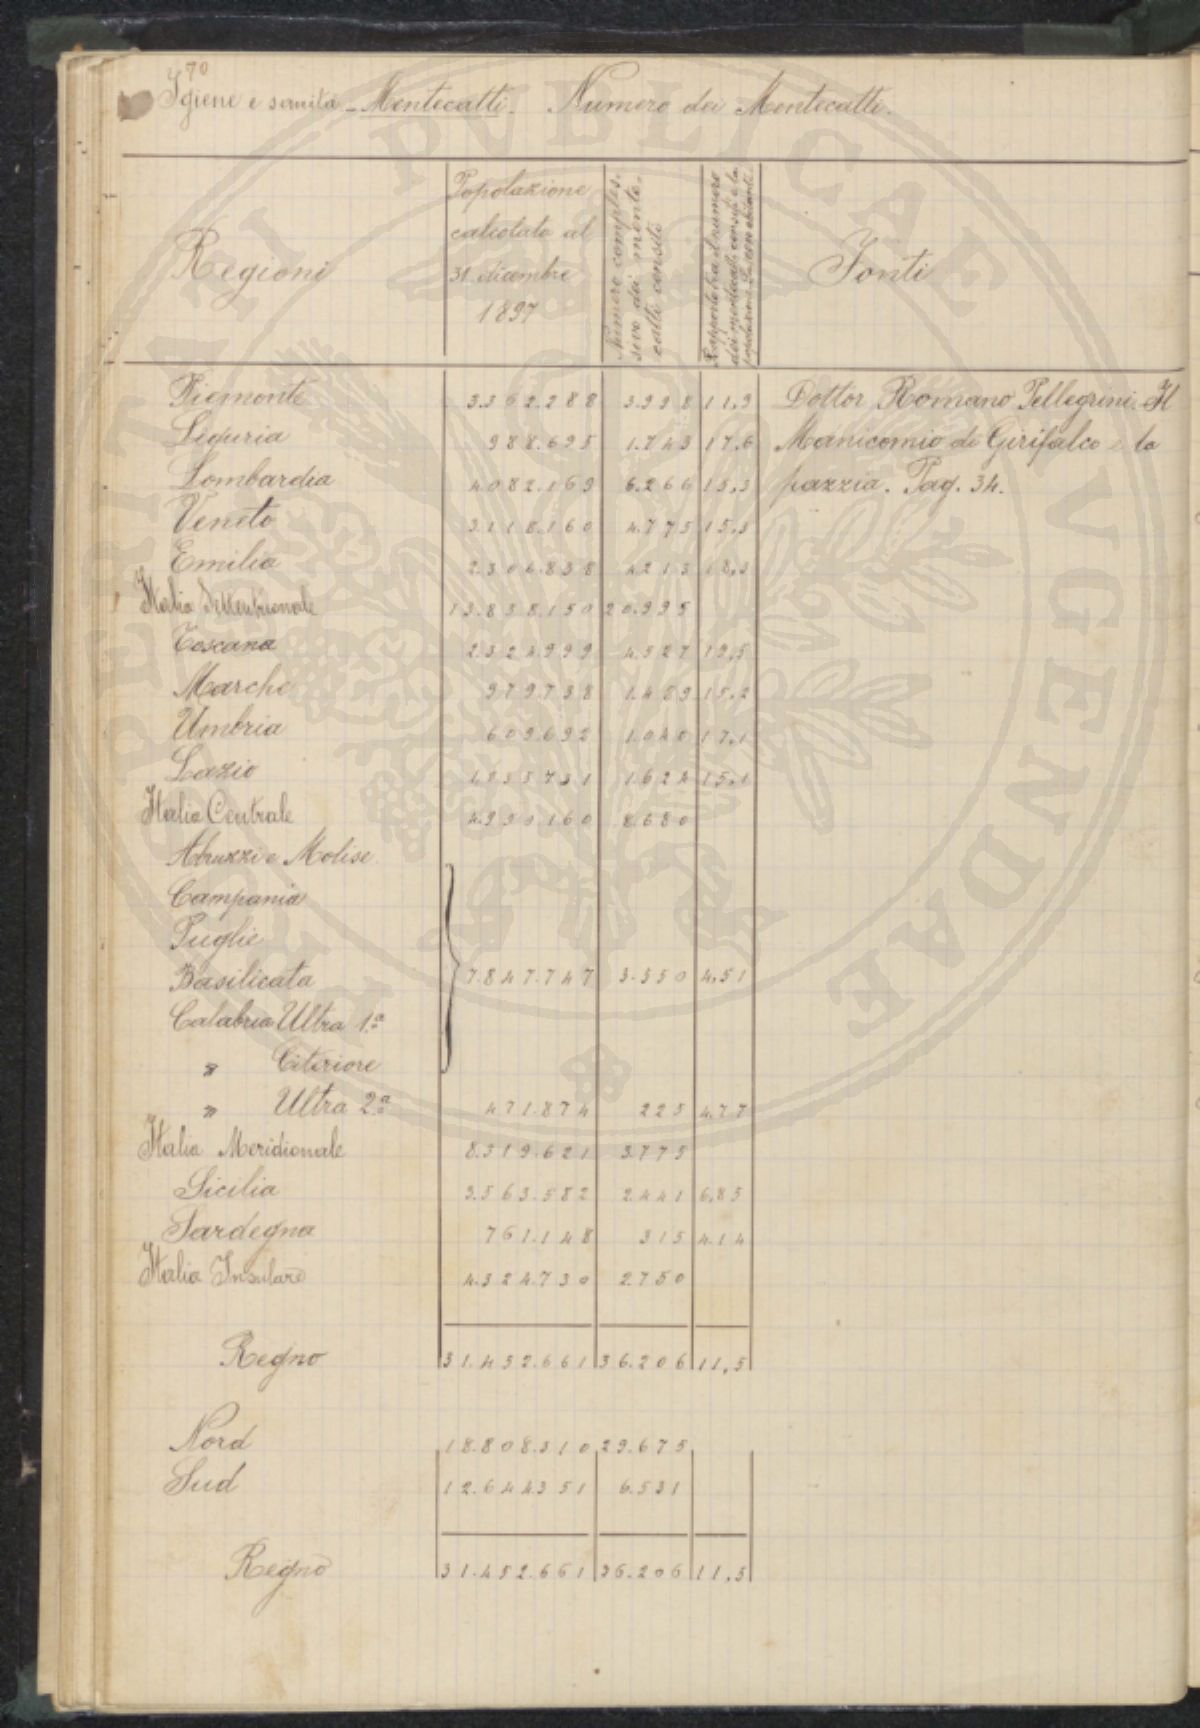 70
Igiene e sanità - Mentecatti. Numero dei Mentecatti.
Regioni
Popolazione
calcolata al
31 dicembre
1897
Numero comples-
sivo dei mente-
catti censiti
Rapporto tra il numero
dei mentecatti censiti e la
popolazione
Fonti
Piemonte 3.362.288 3.998 11,9 Dottor Romano Pellegrini. Il
Liguria 988.695 1.743 17,6 Manicomio di Girifalco e la
Lombardia 4.082.169 6.266 15,3 pazzia. Pag. 34.
Veneto 3.118.160 4.775 15,3
Emilia 2.306.838 4.213 18,3
Italia Settentrionale 13.858.150 20.995
Toscana 2.324.999 4.527 19,5
Marche 979.738 1.489 15,2
Umbria 609.692 1.040 17,1
Lazio 1.035.731 1.624 15,1
Italia Centrale 4.950.160 8.680
Abruzzi e Molise
Campania
Puglie
Basilicata 7.847.747 3.550 4,51
Calabria Ultra 1ª
" Citeriore
" Ultra 2ª 471.874 225 4,77
Italia Meridionale 8.319.621 3.775
Sicilia 3.563.582 2.441 6,85
Sardegna 761.148 315 4,14
Italia Insulare 4.324.730 2.750
Regno 31.452.661 36.206 11,5
Nord 18.808.310 29.675
Sud 12.644351 6.531
Regno 31.452.661 36.206 11,5
PUBLICAE FRUGENDAE